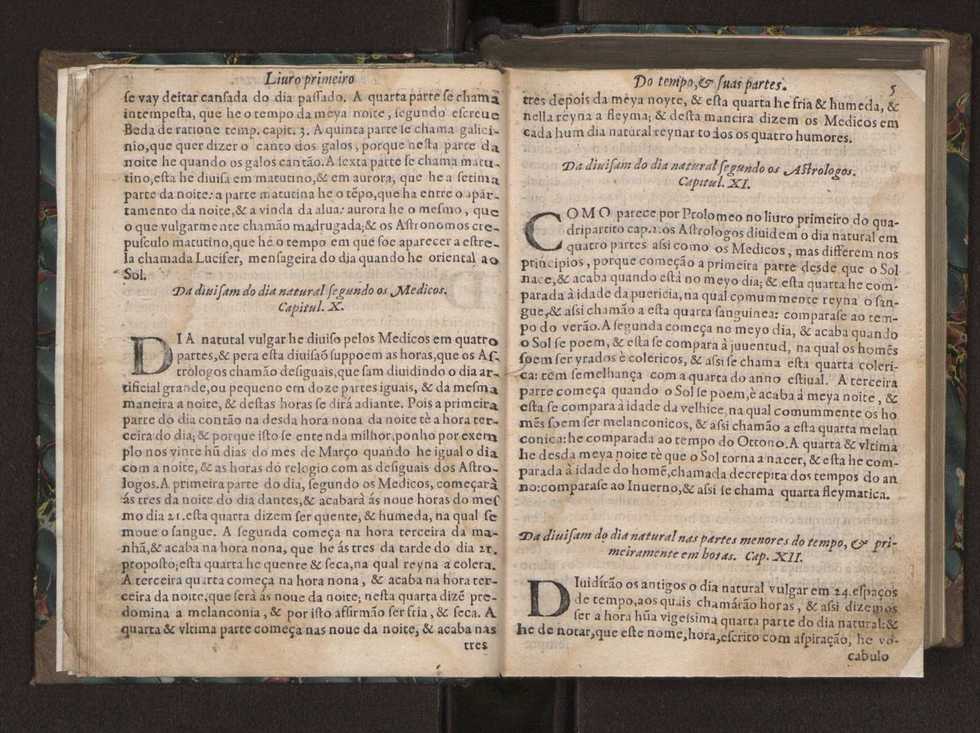 Liuro primeiro
se vay deitar cansada do dia passado. A quarta parte se chama
intempesta, que he o tempo da meya noite, segundo escreue
Beda de ratione temp. capit. 3. A quinta parte se chama galici-
nio, que quer dizer o canto dos galos, porque nesta parte da
noite he quando os galos cantão. A sexta parte se chama matu-
tino, esta he diuisa em matutino, & em aurora, que he a setima
parte da noite: a parte matutina he o tẽpo, que ha entre o apar-
tamento da noite, & a vinda da alua: aurora he o mesmo, que
o que vulgarmente chamão madrugada; & os Astronomos cre-
pusculo matutino, que hé o tempo em que soe aparecer a estre-
la chamada Lucifer, mensageira do dia quando he oriental ao
Sol.
Da diuisam do dia natural segundo os Medicos.
Capitul. X.
DIA natutal vulgar he diuiso pelos Medicos em quatro
partes, & pera esta diuisaõ suppoem as horas, que os As-
trologos chamão desiguais, que sam diuidindo o dia ar-
tificial grande, ou pequeno em doze partes iguais, & da mesma
maneira a noite, & destas horas se dirá adiante. Pois a primeira
parte do dia contão na desda hora nona da noite tè a hora ter-
ceira do dia; & porque isto se entenda milhor, ponho por exem
plo nos vinte hũ dias do mes de Março quando he igual o dia
com a noite, & as horas dó relogio com as desiguais dos Astro-
logos. A primeira parte do dia, segundo os Medicos, começarà
ás tres da noite do dia dantes, & acabará ás noue horas do mes
mo dia 21. esta quarta dizem ser quente, & humeda, na qual se
moue o sangue. A segunda começa na hora terceira da ma-
nhã, & acaba na hora nona, que he ás tres da tarde do dia 21.
proposto; esta quarta he quente & seca, na qual reyna a colera.
A terceira quarta começa na hora nona, & acaba na hora ter-
ceira da noite, que será ás noue da noite; nesta quarta dizẽ pre-
domina a melanconia, & por isto affirmão ser fria, & seca. A
quarta & vltima parte começa nas noue da noite, & acaba nas
tres
Do tempo, & suas partes.
5
tres depois da meya noyte, & esta quarta he fria & humeda, &
nella reyna a fleyma; & desta maneira dizem os Medicos em
cada hum dia natural reynar todos os quatro humores.
Da diuisam do dia natural segundo os Astrologos.
Capitul. XI.
COMO parece por Ptolomeo no liuro primeiro do qua-
dripartito cap. 2. os Astrologos diuidem o dia natural em
quatro partes assi como os Medicos, mas differem nos
principios, porque começão a primeira parte desde que o Sol
nace, & acaba quando està no meyo dia; & esta quarta he com-
parada à idade da puericia, na qual comummente reyna o san-
gue, & assi chamão a esta quarta sanguinea: comparase ao tem-
po do verão. A segunda começa no meyo dia, & acaba quando
o Sol se poem, & esta se compara à juuentud, na qual os homẽs
soem ser yrados e colericos, & assi se chama esta quarta coleri-
ca: tẽm semelhança com a quarta do anno estiual. A terceira
parte começa quando o Sol se poem, è acaba á meya noite, &
esta se compara à idade da velhice, na qual comummente os ho
mẽs soem ser melanconicos, & assi chamão a esta quarta melan
conica: he comparada ao tempo do Ottono. A quarta & vltima
he desda meya noite tè que o Sol torna a nacer, & esta he com-
parada à idade do homẽ, chamada decrepita dos tempos do an
no: comparase ao Inuerno, & assi se chama quarta fleymatica.
Da diuisam do dia natural nas partes menores do tempo, & pri-
meiramente em horas. Cap. XII.
DIuidírão os antigos o dia natural vulgar em 24. espaços
de tempo, aos quais chamárão horas, & assi dizemos
ser a hora hũa vigesima quarta parte do dia natural: &
he de notar, que este nome, hora, escrito com aspiração, he vo-
cabulo